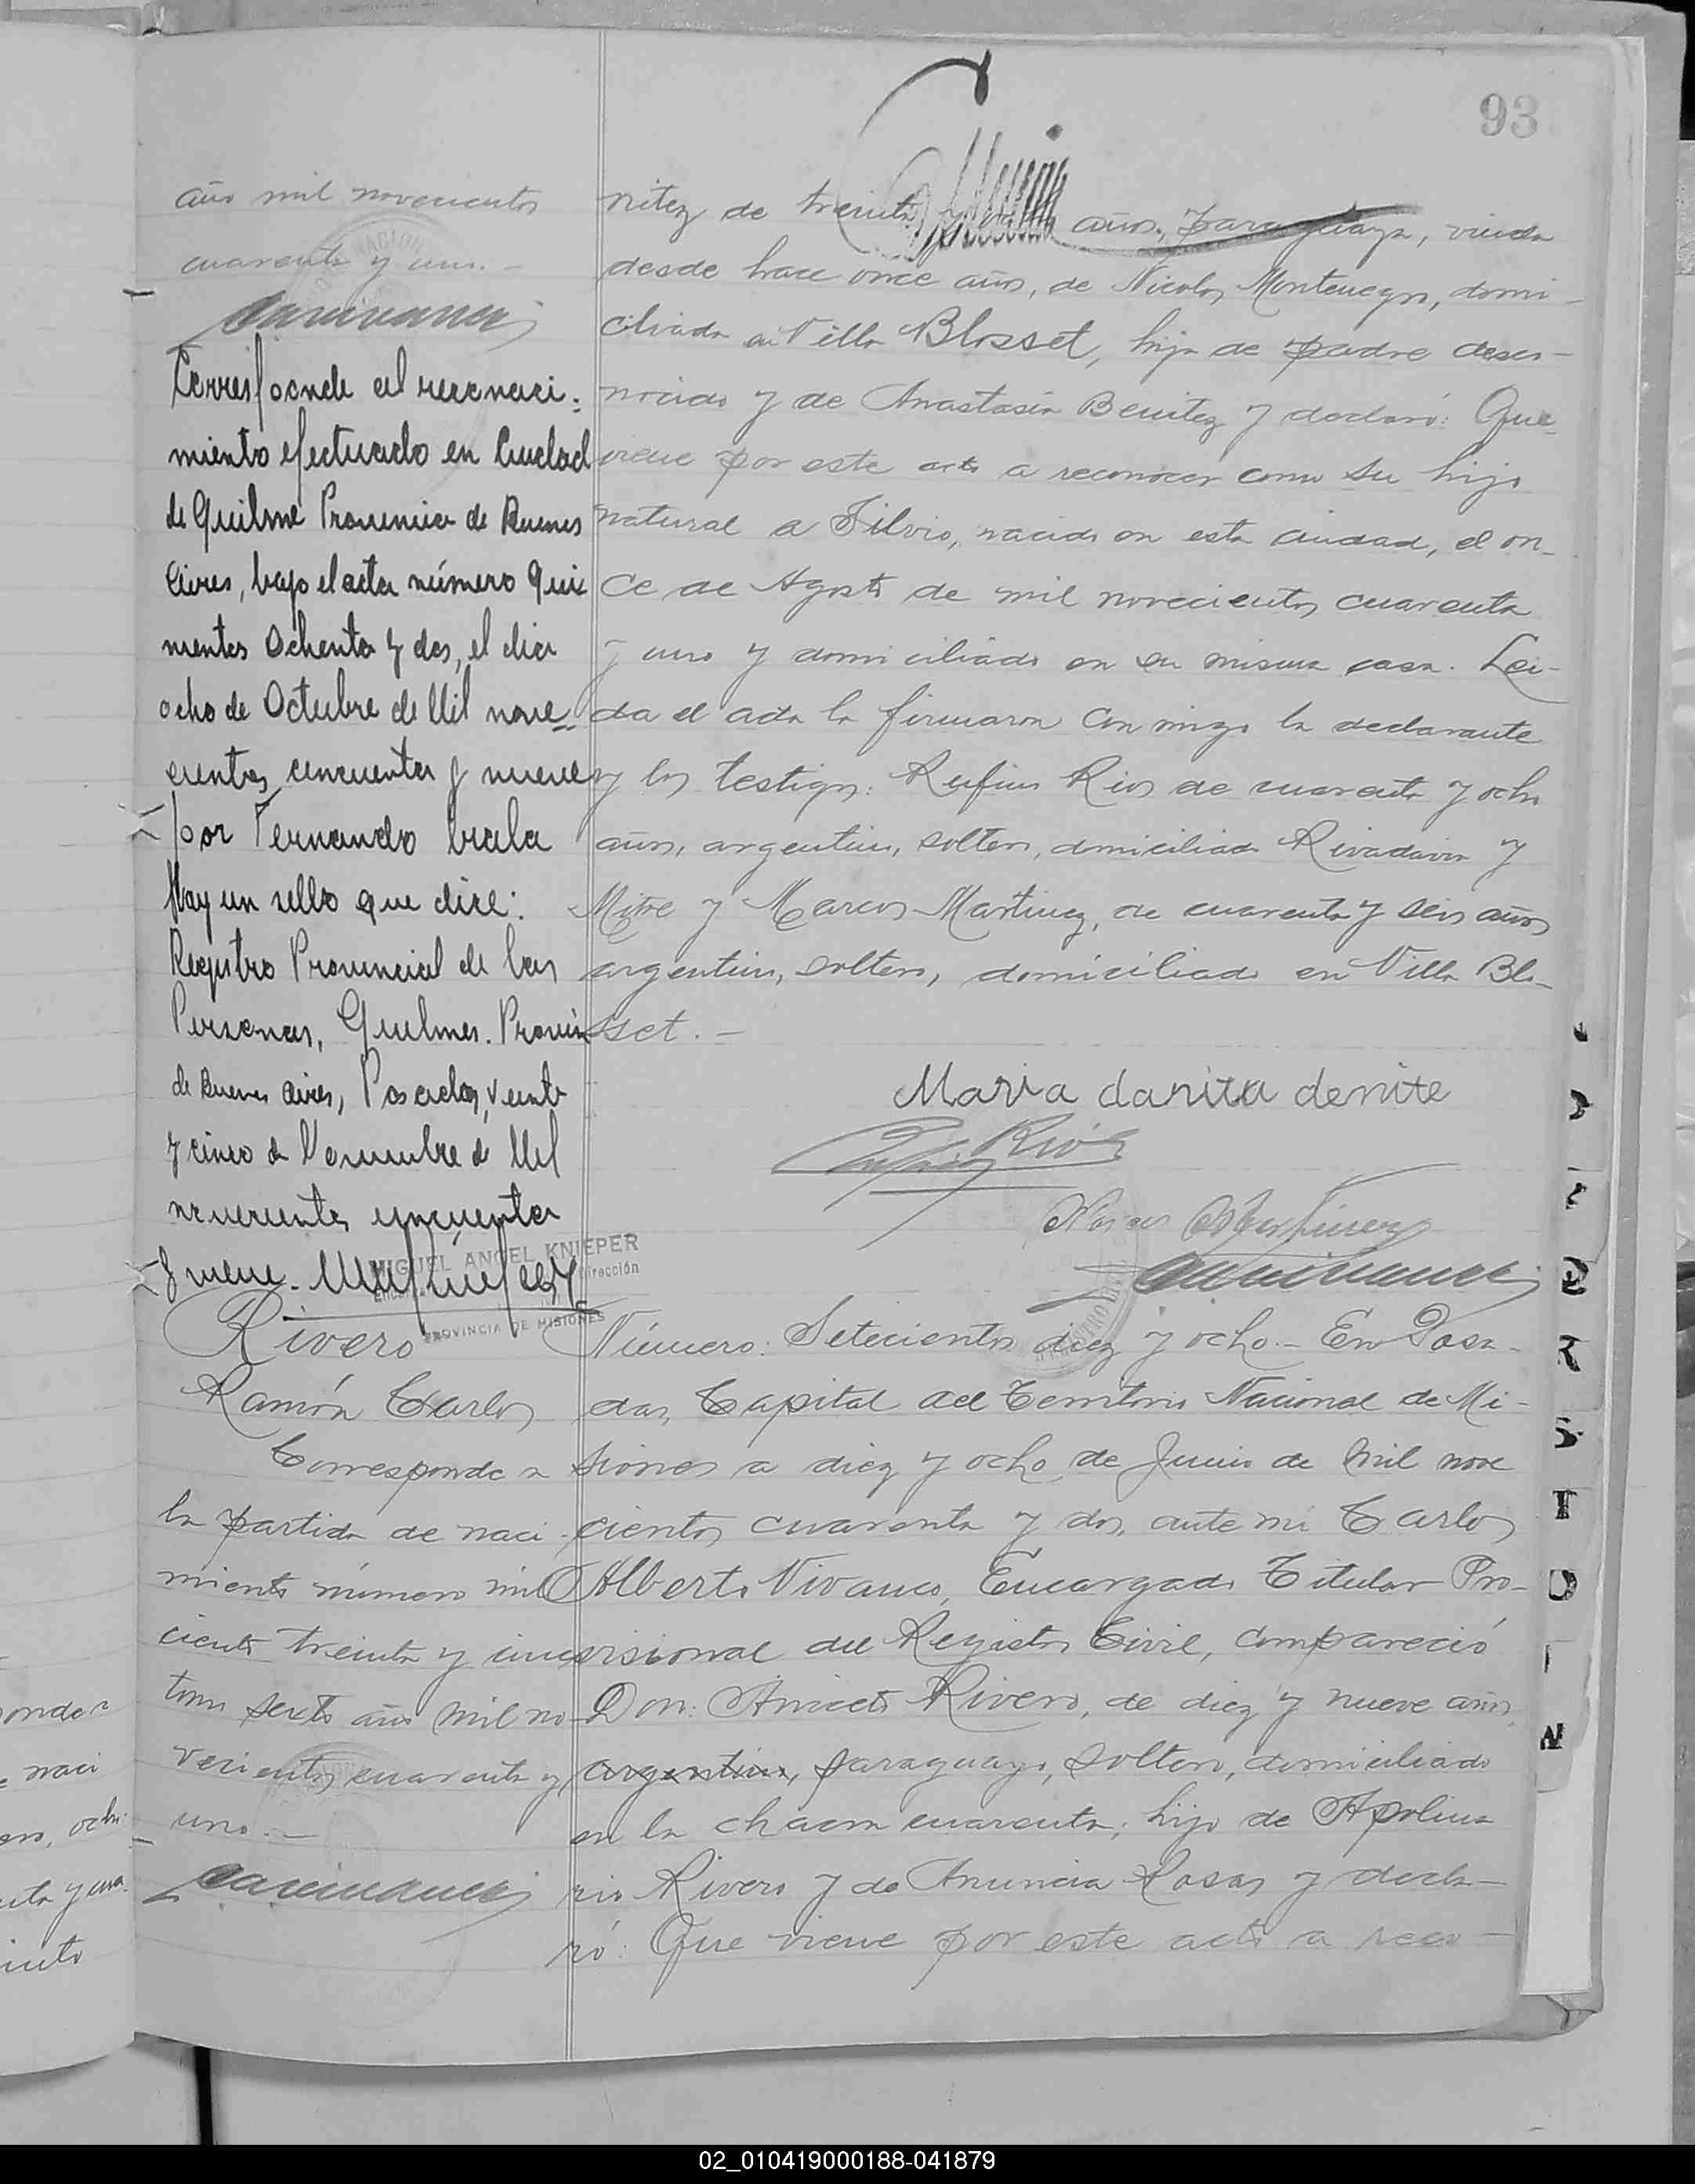 93
año mil novecientos
cuarenta y uno. -
Corresponde al reconoci-
miento efectuado en Ciudad
de Quilme Provincia de Buenos
Aires, bajo el acta número Qui
nientos Ochenta y dos, el dia
ocho de Octubre de Mil nove-
cientos cincuenta y nueve
por Fernando
Hay un sello que dice:
Registro Provincial de las
Personas, Quilmes. Provin
de Buenos Aires, Posadas, veinte
y cinco de Noviembre de Mil
novecientos cincuenta
y nueve.
MIGUEL ANGEL KNIEPER
Dirección
PROVINCIA DE MISIONES
Rivero
Ramón Carlos
Corresponde a
la partida de naci-
miento número mil
ciento treinta y cinco
tomo sexto año mil no-
vecientos cuarenta y
uno. -
nitez de treinta y años, paraguaya, viuda
desde hace once años, de Nicolas Montenegro, domi-
ciliada en Villa Blosset, hija de padre desco-
nocido y de Anastasia Benitez y declaró: Que
viene por este acto a reconocer como su hijo
natural a Silvio, nacido en esta ciudad, el on-
ce de Agosto de mil novecientos cuarenta
y uno y domiciliado en su misma casa. Lei-
da el acta la firmaron conmigo la declarante
y los testigos: Rufino Rios de cuarenta y ocho
años, argentino, soltero, domiciliado Rivadavia y
Mitre y Marcos Martinez, de cuarenta y seis años
argentino, soltero, domiciliado en Villa Blo-
sset. -
Maria danita denite
Rufino Rios
Marcos Martinez
Número: Setecientos diez y ocho. - En Posa-
das, Capital del Territorio Nacional de Mi-
siones a diez y ocho de Junio de mil nove
cientos cuarenta y dos, ante mi Carlos
Alberto Vivanco, Encargado Titular Pro-
visional del Registro Civil, compareció
Don: Aniceto Rivero, de diez y nueve años,
argentino, paraguayo, soltero, domiciliado
en la chacra cuarenta; hijo de Apolina
rio Rivero y de Anuncia Rosas y decla-
ró: Que viene por este acto a reco-
onde a
naci
ocho
y una
R
S
T
N
02_010419000188-041879